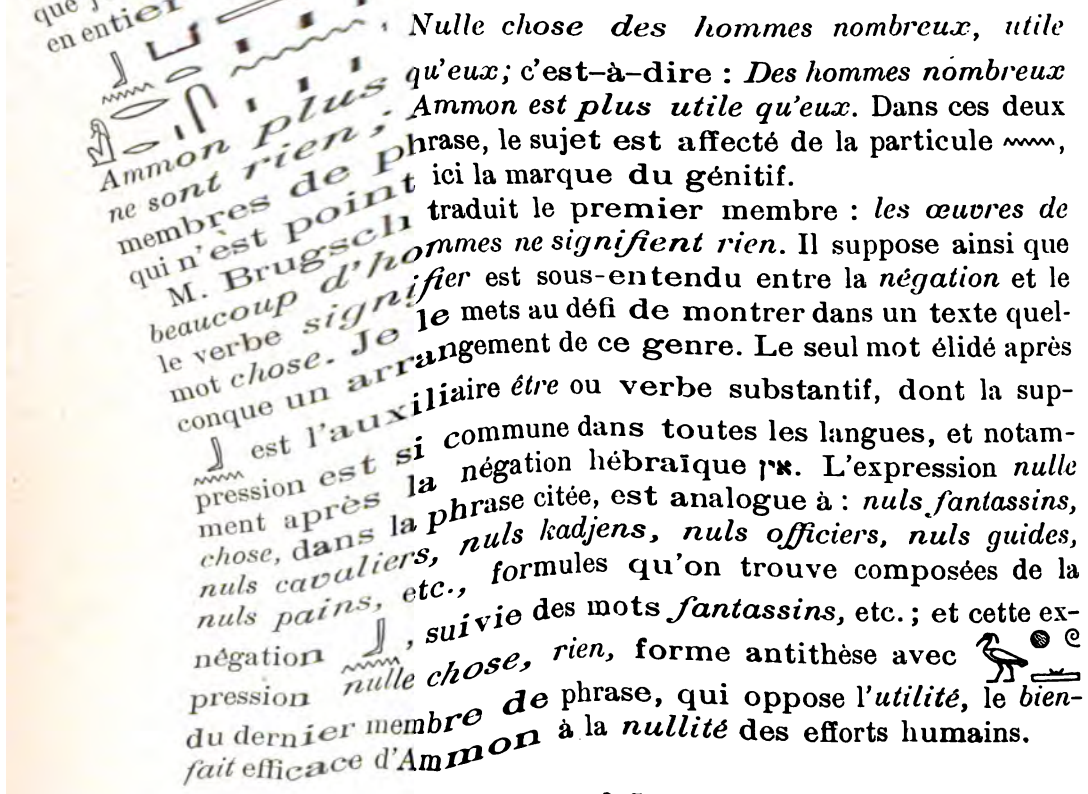 que
en entier
, Nulle chose des hommes nombreux, utile
Ammon plus qu'eux; c'est-à-dire : Des hommes nombreux
ne sont rien ; Ammon est plus utile qu'eux. Dans ces deux
membres de phrase, le sujet est affecté de la particule 𓈖,
qui n'èst point ici la marque du génitif.
M. Brugsch traduit le premier membre : les œuvres de
beaucoup d'hommes ne signifient rien. Il suppose ainsi que
le verbe signifier est sous-entendu entre la négation et le
mot chose. Je le mets au défi de montrer dans un texte quel-
conque un arrangement de ce genre. Le seul mot élidé après
𓃀𓈖 est l'auxiliaire être ou verbe substantif, dont la sup-
pression est si commune dans toutes les langues, et notam-
ment après la négation hébraïque אין. L'expression nulle
chose, dans la phrase citée, est analogue à : nuls fantassins,
nuls cavaliers, nuls kadjens, nuls officiers, nuls guides,
nuls pains, etc., formules qu'on trouve composées de la
négation 𓃀𓈖, suivie des mots fantassins, etc. ; et cette ex-
pression nulle chose, rien, forme antithèse avec
du dernier membre de phrase, qui oppose l'utilité, le bien-
fait efficace d'Ammon à la nullité des efforts humains.